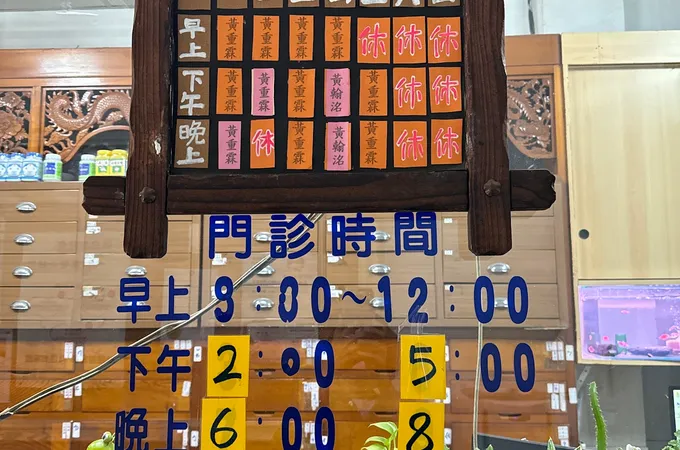 早上 黃重霖 黃重霖 黃重霖 黃重霖 休 休 休
下午 黃重霖 黃重霖 黃重霖 黃翰洺 黃重霖 休 休
晚上 黃重霖 休 黃重霖 黃翰洺 黃重霖 休 休
門診時間
早上 9:00~12:00
下午 2:00 5:00
晚上 6:00 8